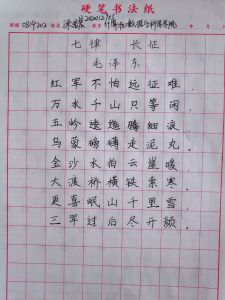 硬笔书法纸
班级 姓名 学号
七律 长征
毛泽东
红军不怕远征难,
万水千山只等闲.
五岭逶迤腾细浪,
乌蒙磅礴走泥丸.
金沙水拍云崖暖,
大渡桥横铁索寒.
更喜岷山千里雪,
三军过后尽开颜.